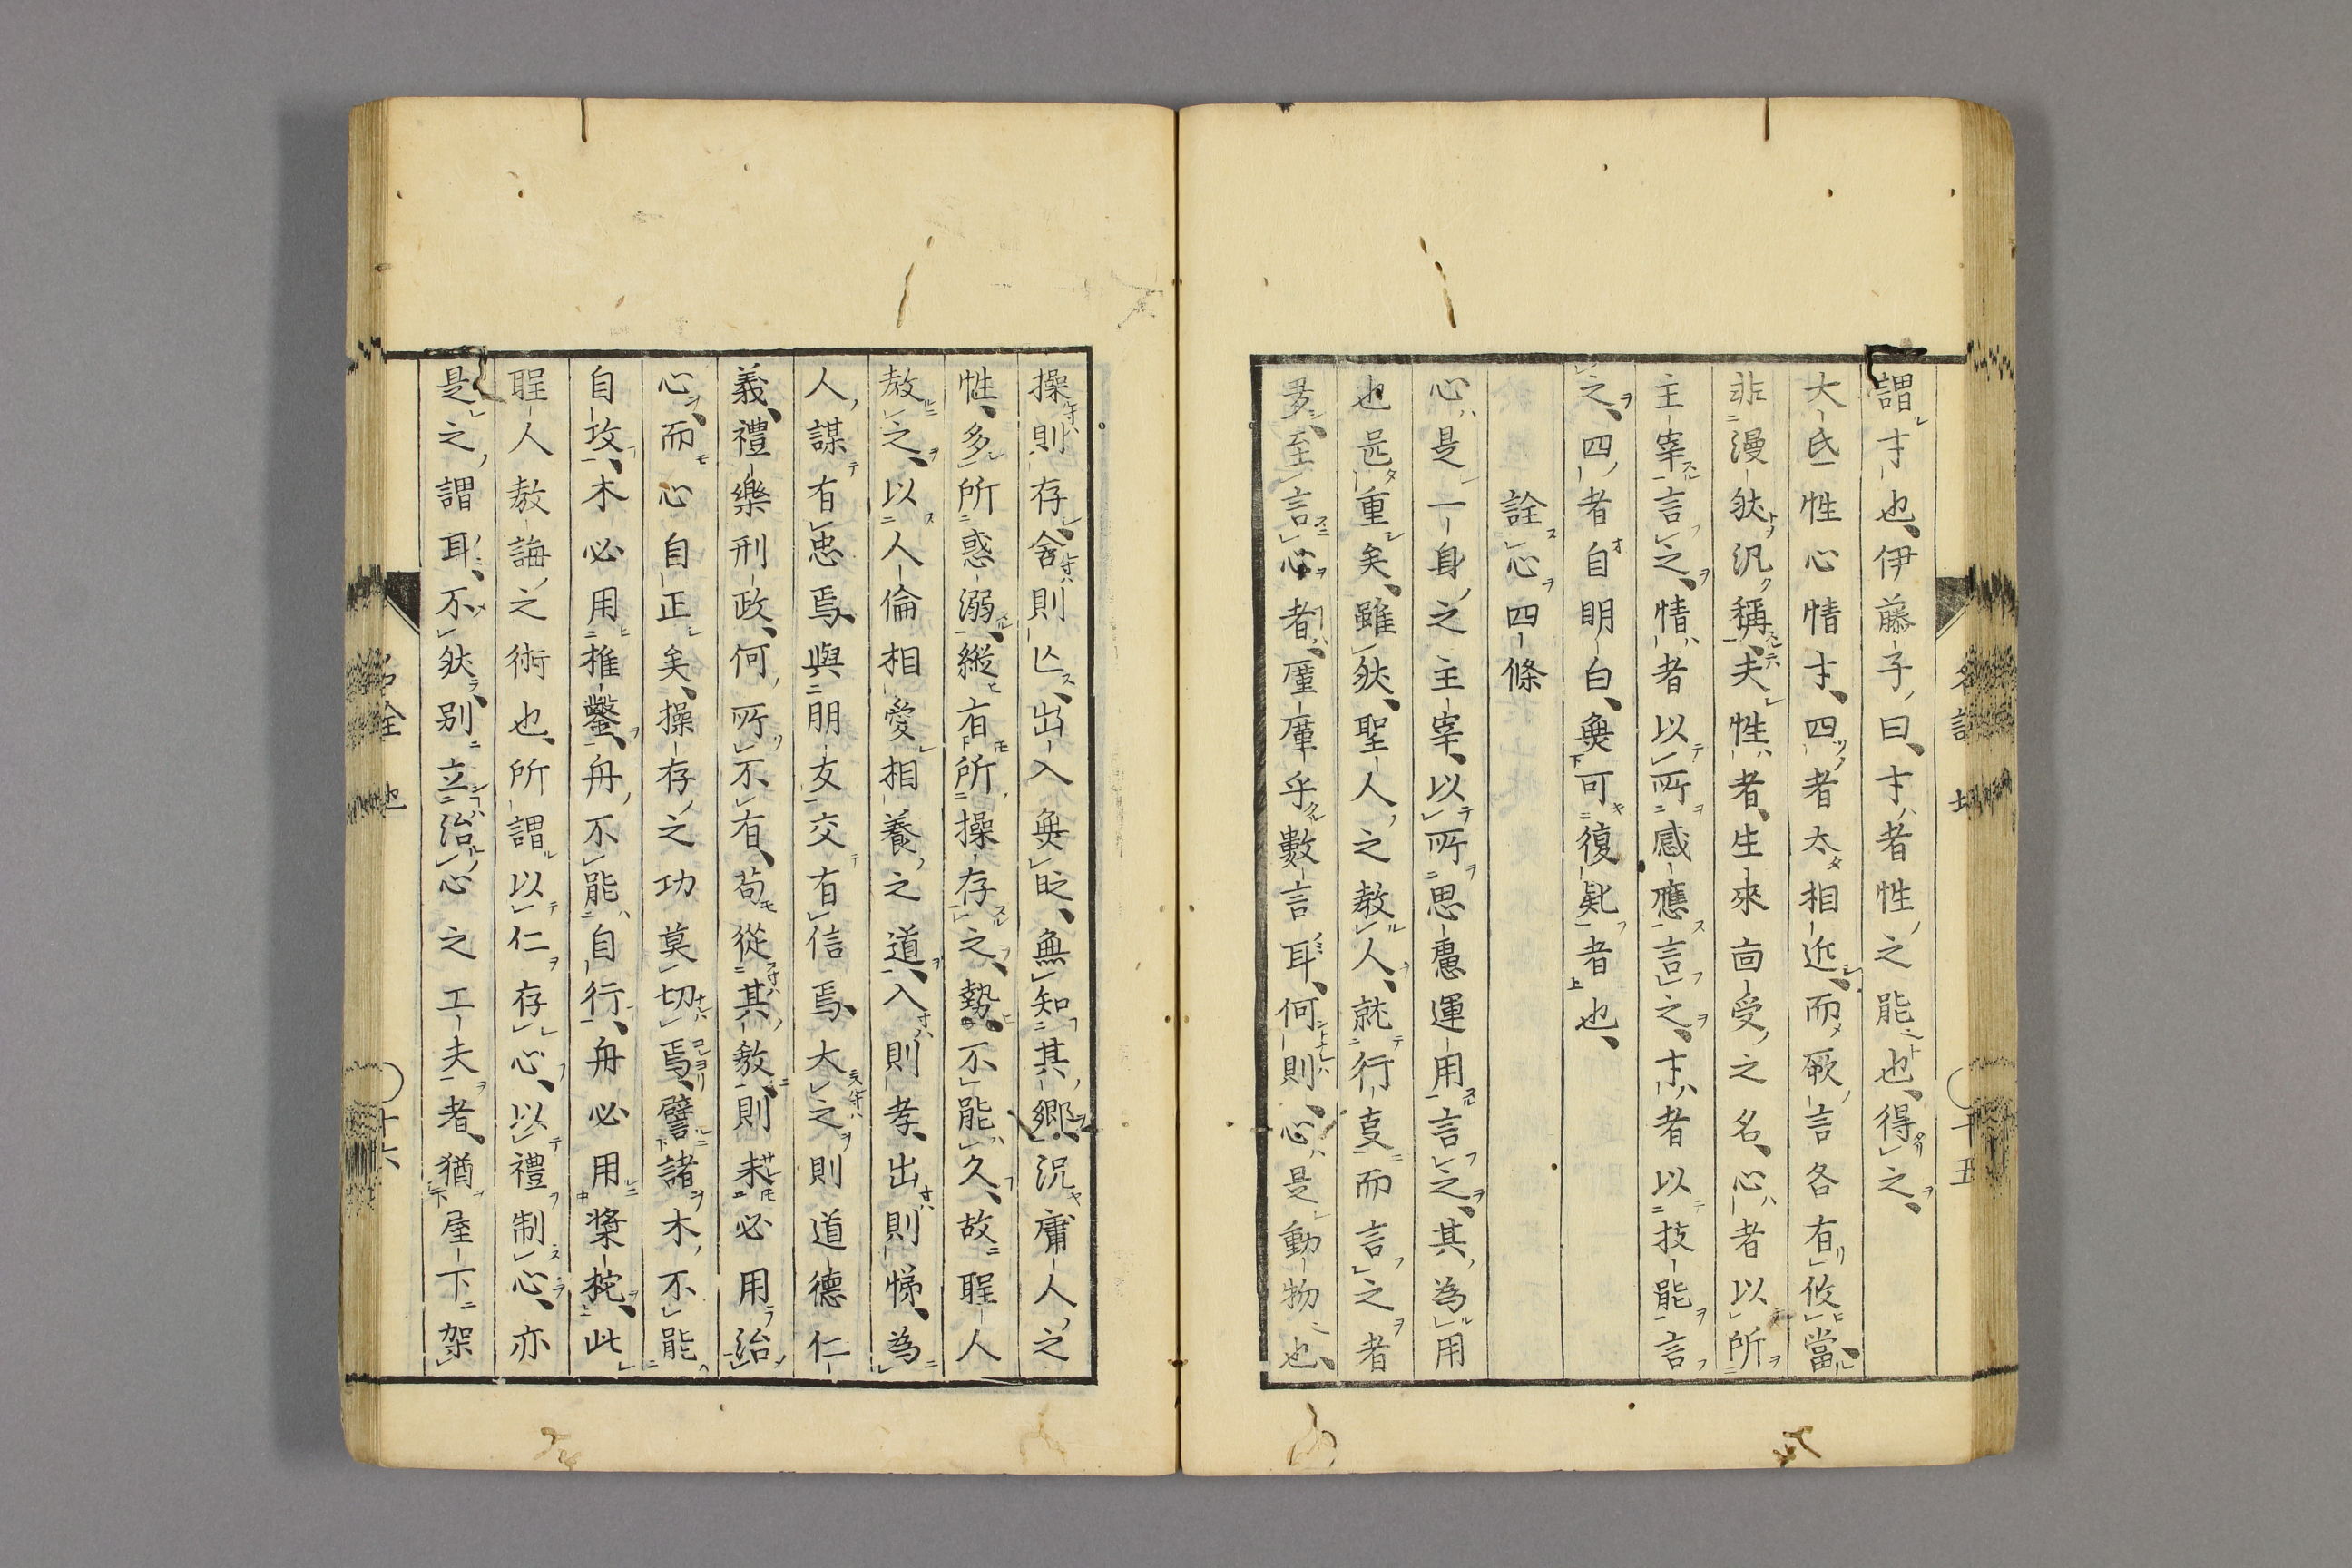 謂才也、伊藤子曰、才者性之能也、得之、
大氐性心情才、四者太相近、而厥言各有攸當、
非漫然汎稱、夫性者、生來面受之名、心者以所
主宰言之、情者以所感應言之、才者以技能言
之、四者自明白、無可復𣣸者也、
詮心四條
心是一身之主宰、以所思慮運用言之、其為用
也是重矣、雖然聖人之教人、就行事而言之者
多、至言心者、厪厪乎數言耳、何則、心是動物也、
操則存、舍則亡、出入無時、無知其鄉、況庸人之
性、多所惑溺、縱有所操存之、勢不能久、故聖人
教之、以人倫相愛相養之道、入則孝、出則悌、為
人謀有忠焉、與朋友交有信焉、大之則道德仁
義、禮樂刑政、何所不有、苟從其教、則未必用治
心、而心自正矣、操存之功莫切焉、譬諸木不能
自攻、木必用椎鑿、舟不能自行、舟必用槳柁、此
聖人教誨之術也、所謂以仁存心、以禮制心、亦
是之謂耳、不然別立治心之工夫者、猶屋下架
名詮 地 十五
名詮 地 十六